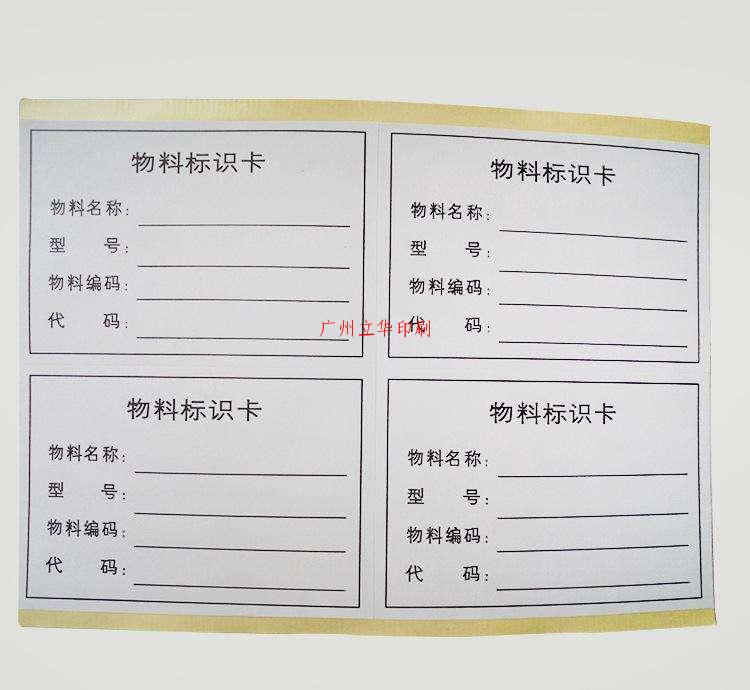 物料标识卡
物料名称:
型 号:
物料编码:
代 码:
物料标识卡
物料名称:
型 号:
物料编码:
代 码:
广州立华印刷
物料标识卡
物料名称:
型 号:
物料编码:
代 码:
物料标识卡
物料名称:
型 号:
物料编码:
代 码: